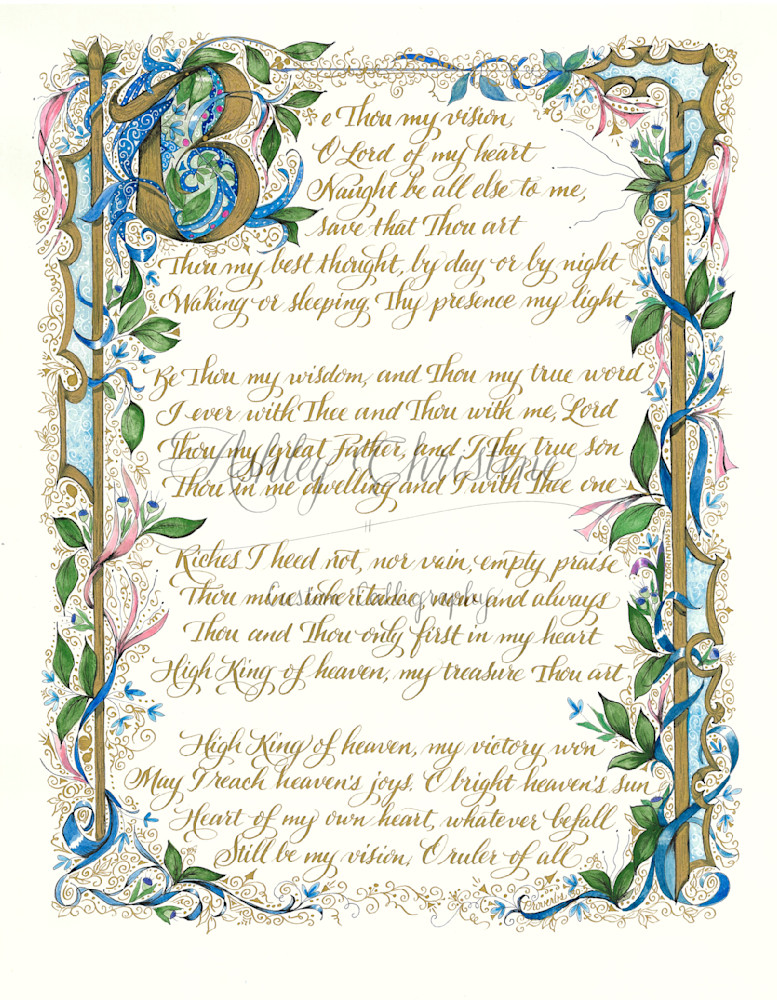 Be Thou my vision,
O Lord of my heart
Naught be all else to me,
save that Thou art
Thou my best thought, by day or by night
Waking or sleeping Thy presence my light
Be Thou my wisdom, and Thou my true word
I ever with Thee and Thou with me, Lord
Thou my great Father, and I thy true son
Ashley Christine
Thou in me dwelling and I with Thee one
Riches I heed not, nor vain, empty praise
Thou mine inheritance, now and always
Custom Calligraphy
Thou and Thou only first in my heart
High King of heaven, my treasure Thou art
High King of heaven, my victory won
May I reach heaven's joys, O bright heaven's sun
Heart of my own heart, whatever befall
Still be my vision, O ruler of all
Proverbs